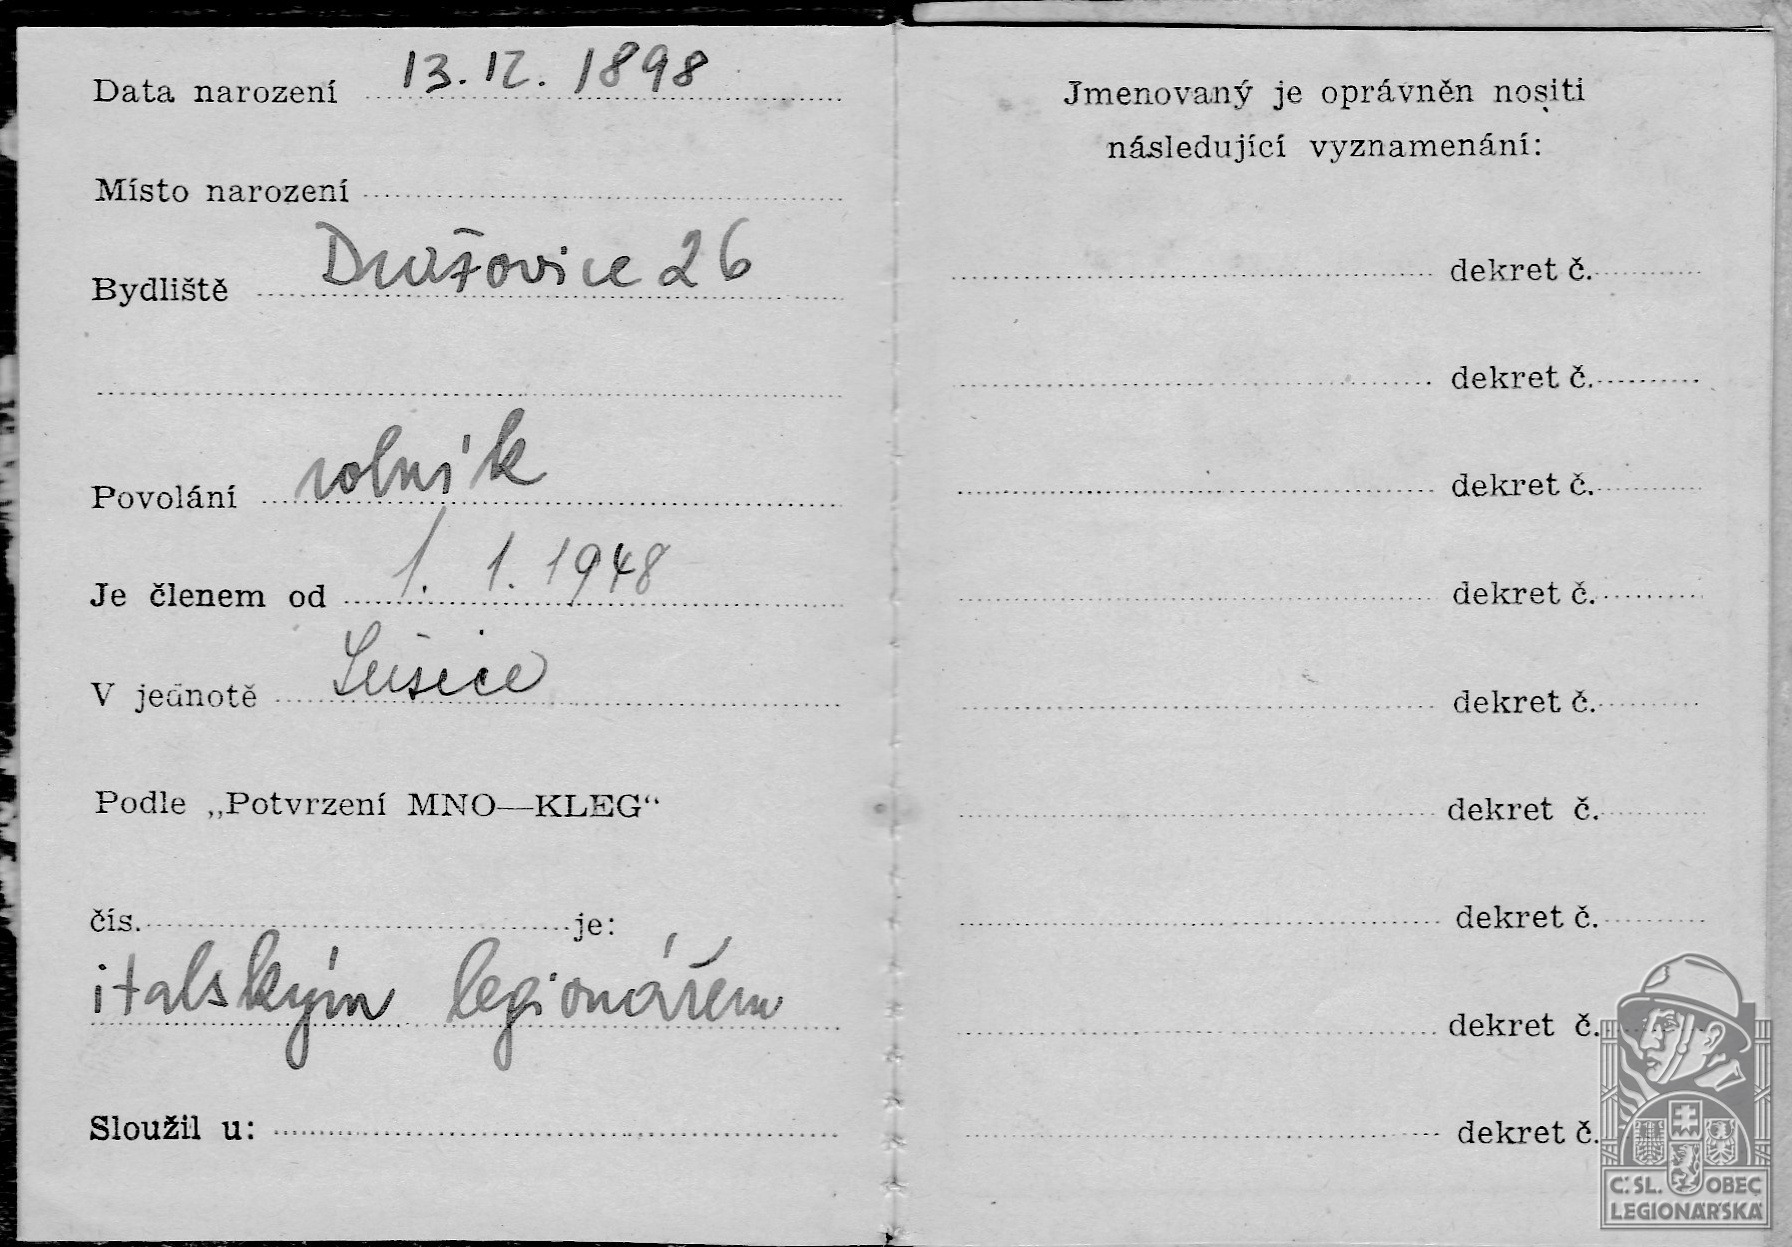 Data narození 13. 12. 1898
Místo narození
Bydliště Dražovice 26
Povolání rolník
Je členem od 1. 1. 1948
V jednotě Sušice
Podle „Potvrzení MNO—KLEG“
čís. je:
italským legionářem
Sloužil u:
Jmenovaný je oprávněn nositi
následující vyznamenání:
dekret č.
dekret č.
dekret č.
dekret č.
dekret č.
dekret č.
dekret č.
dekret č.
dekret č.
Č. SL. OBEC
LEGIONÁŘSKÁ